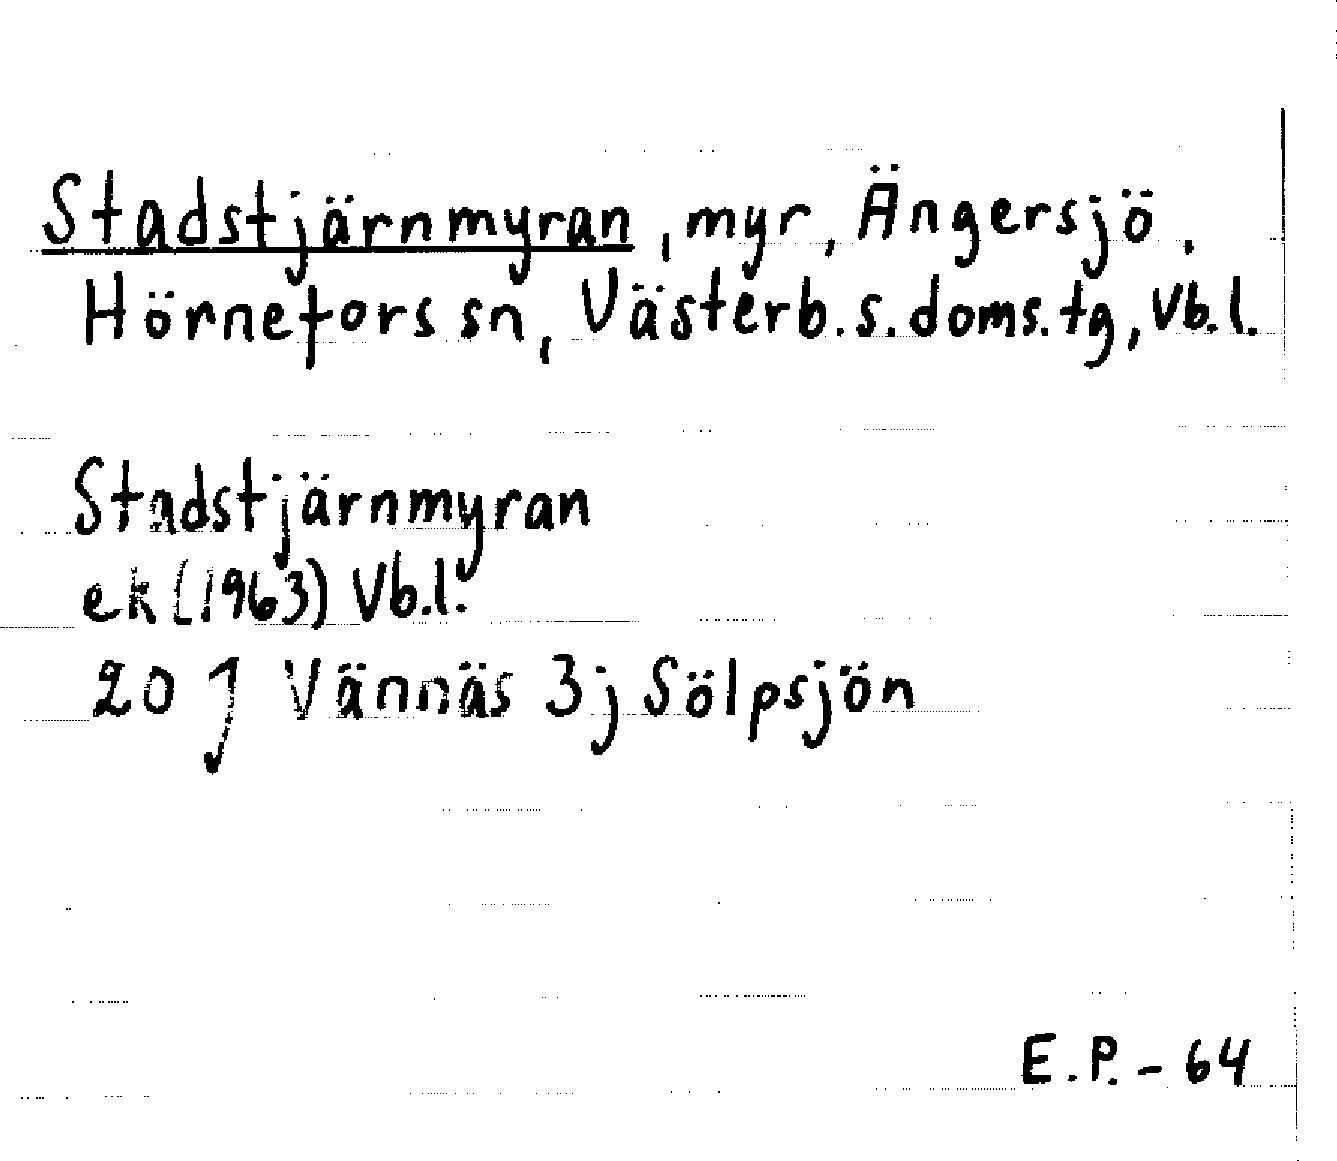 Stadstjärnmyran, myr, Ängersjö,
Hörnefors sn, Västerb.s.doms.tg, Vb.l.
Stadstjärnmyran
ek (1963) Vb.l.
20 J Vännäs 3j Sölpsjön
E.P. - 64